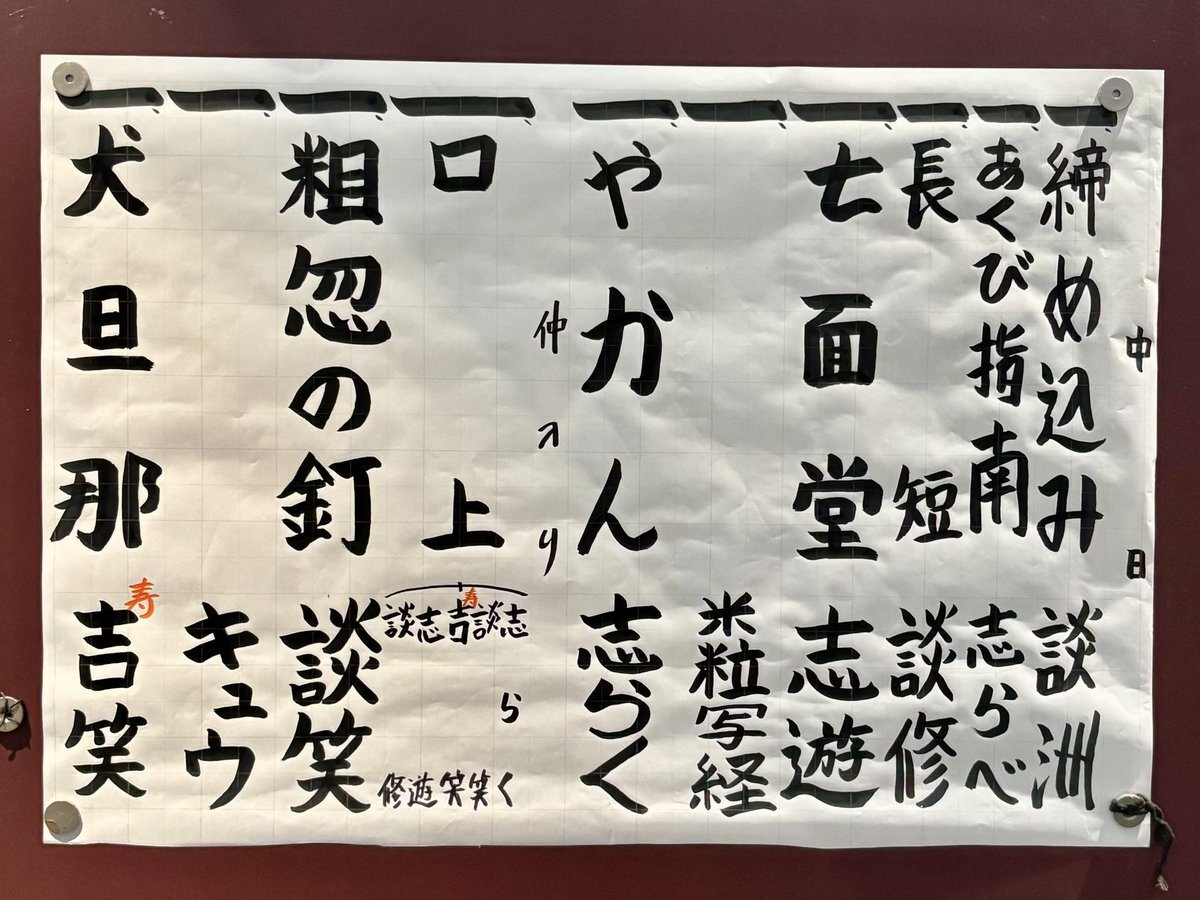 中日
一、締め込み 談洲
一、あくび指南 志らべ
一、長短 談修
一、七面堂 志遊
一、米粒写経
一、やかん 志らく
仲入り
一、口上
志らく
談笑
寿吉笑
志遊
談修
一、粗忽の釘 談笑
一、キュウ
一、犬旦那 寿吉笑